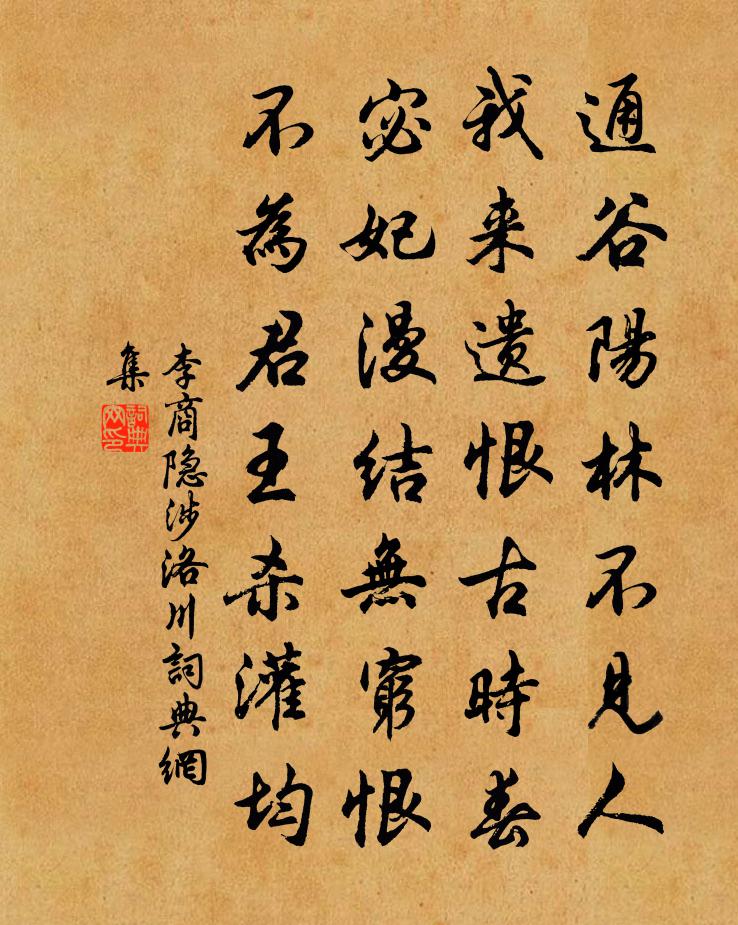 通谷陽林不見人
我来遗恨古時春
宓妃漫结無窮恨
不為君王杀灌均
李商隐涉洛川詞典網
集
詞典
网印